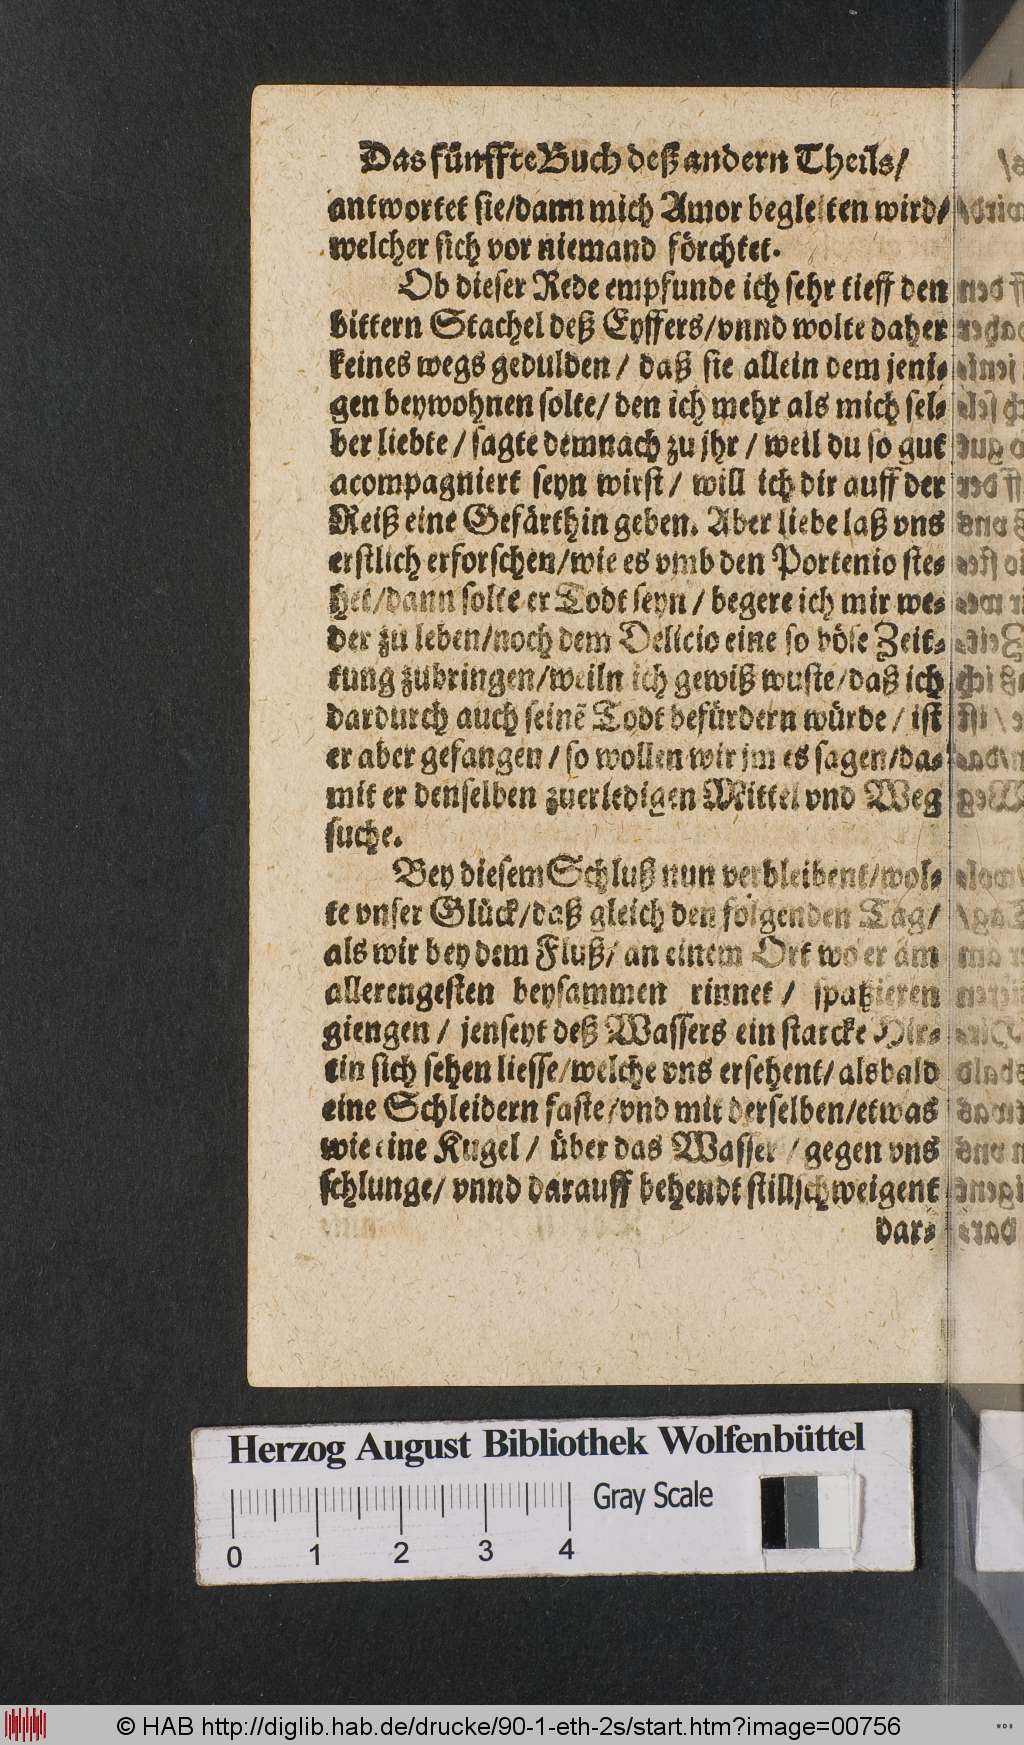 Das fünffte Buch deß andern Theils/
antwortet sie/dann mich Amor begleiten wird/
welcher sich vor niemand förchtet.
Ob dieser Rede empfunde ich sehr tieff den
bittern Stachel deß Eyffers/vnnd wolte daher
keines wegs gedulden/ daß sie allein dem jeni-
gen beywohnen solte/ den ich mehr als mich sel-
ber liebte/ sagte demnach zu jhr/ weil du so gut
acompagniert seyn wirst/ will ich dir auff der
Reiß eine Gefärthin geben. Aber liebe laß vns
erstlich erforschen/wie es vmb den Portenio ste-
het/dann solte er Todt seyn/ begere ich mir we-
der zu leben/noch dem Delicio eine so böse Zeit-
tung zubringen/weiln ich gewiß wuste/daß ich
dardurch auch seinẽ Todt befürdern würde/ ist
er aber gefangen/ so wollen wir jm es sagen/da-
mit er denselben zuerledigen Mittel vnd Weg
suche.
Bey diesem Schluß nun verbleibent/wol-
te vnser Glück/daß gleich den folgenden Tag/
als wir bey dem Fluß/ an einem Ort wo er am
allerengesten beysammen rinnet/ spatzieren
giengen/ jenseyt deß Wassers ein starcke Hir-
tin sich sehen liesse/welche vns ersehent/ alsbald
eine Schleidern faste/vnd mit derselben/etwas
wie eine Kugel/ über das Wasser/ gegen vns
schlunge/ vnnd darauff behendt stillschweigent
dar-
Herzog August Bibliothek Wolfenbüttel
0 1 2 3 4 Gray Scale
© HAB http://diglib.hab.de/drucke/90-1-eth-2s/start.htm?image=00756